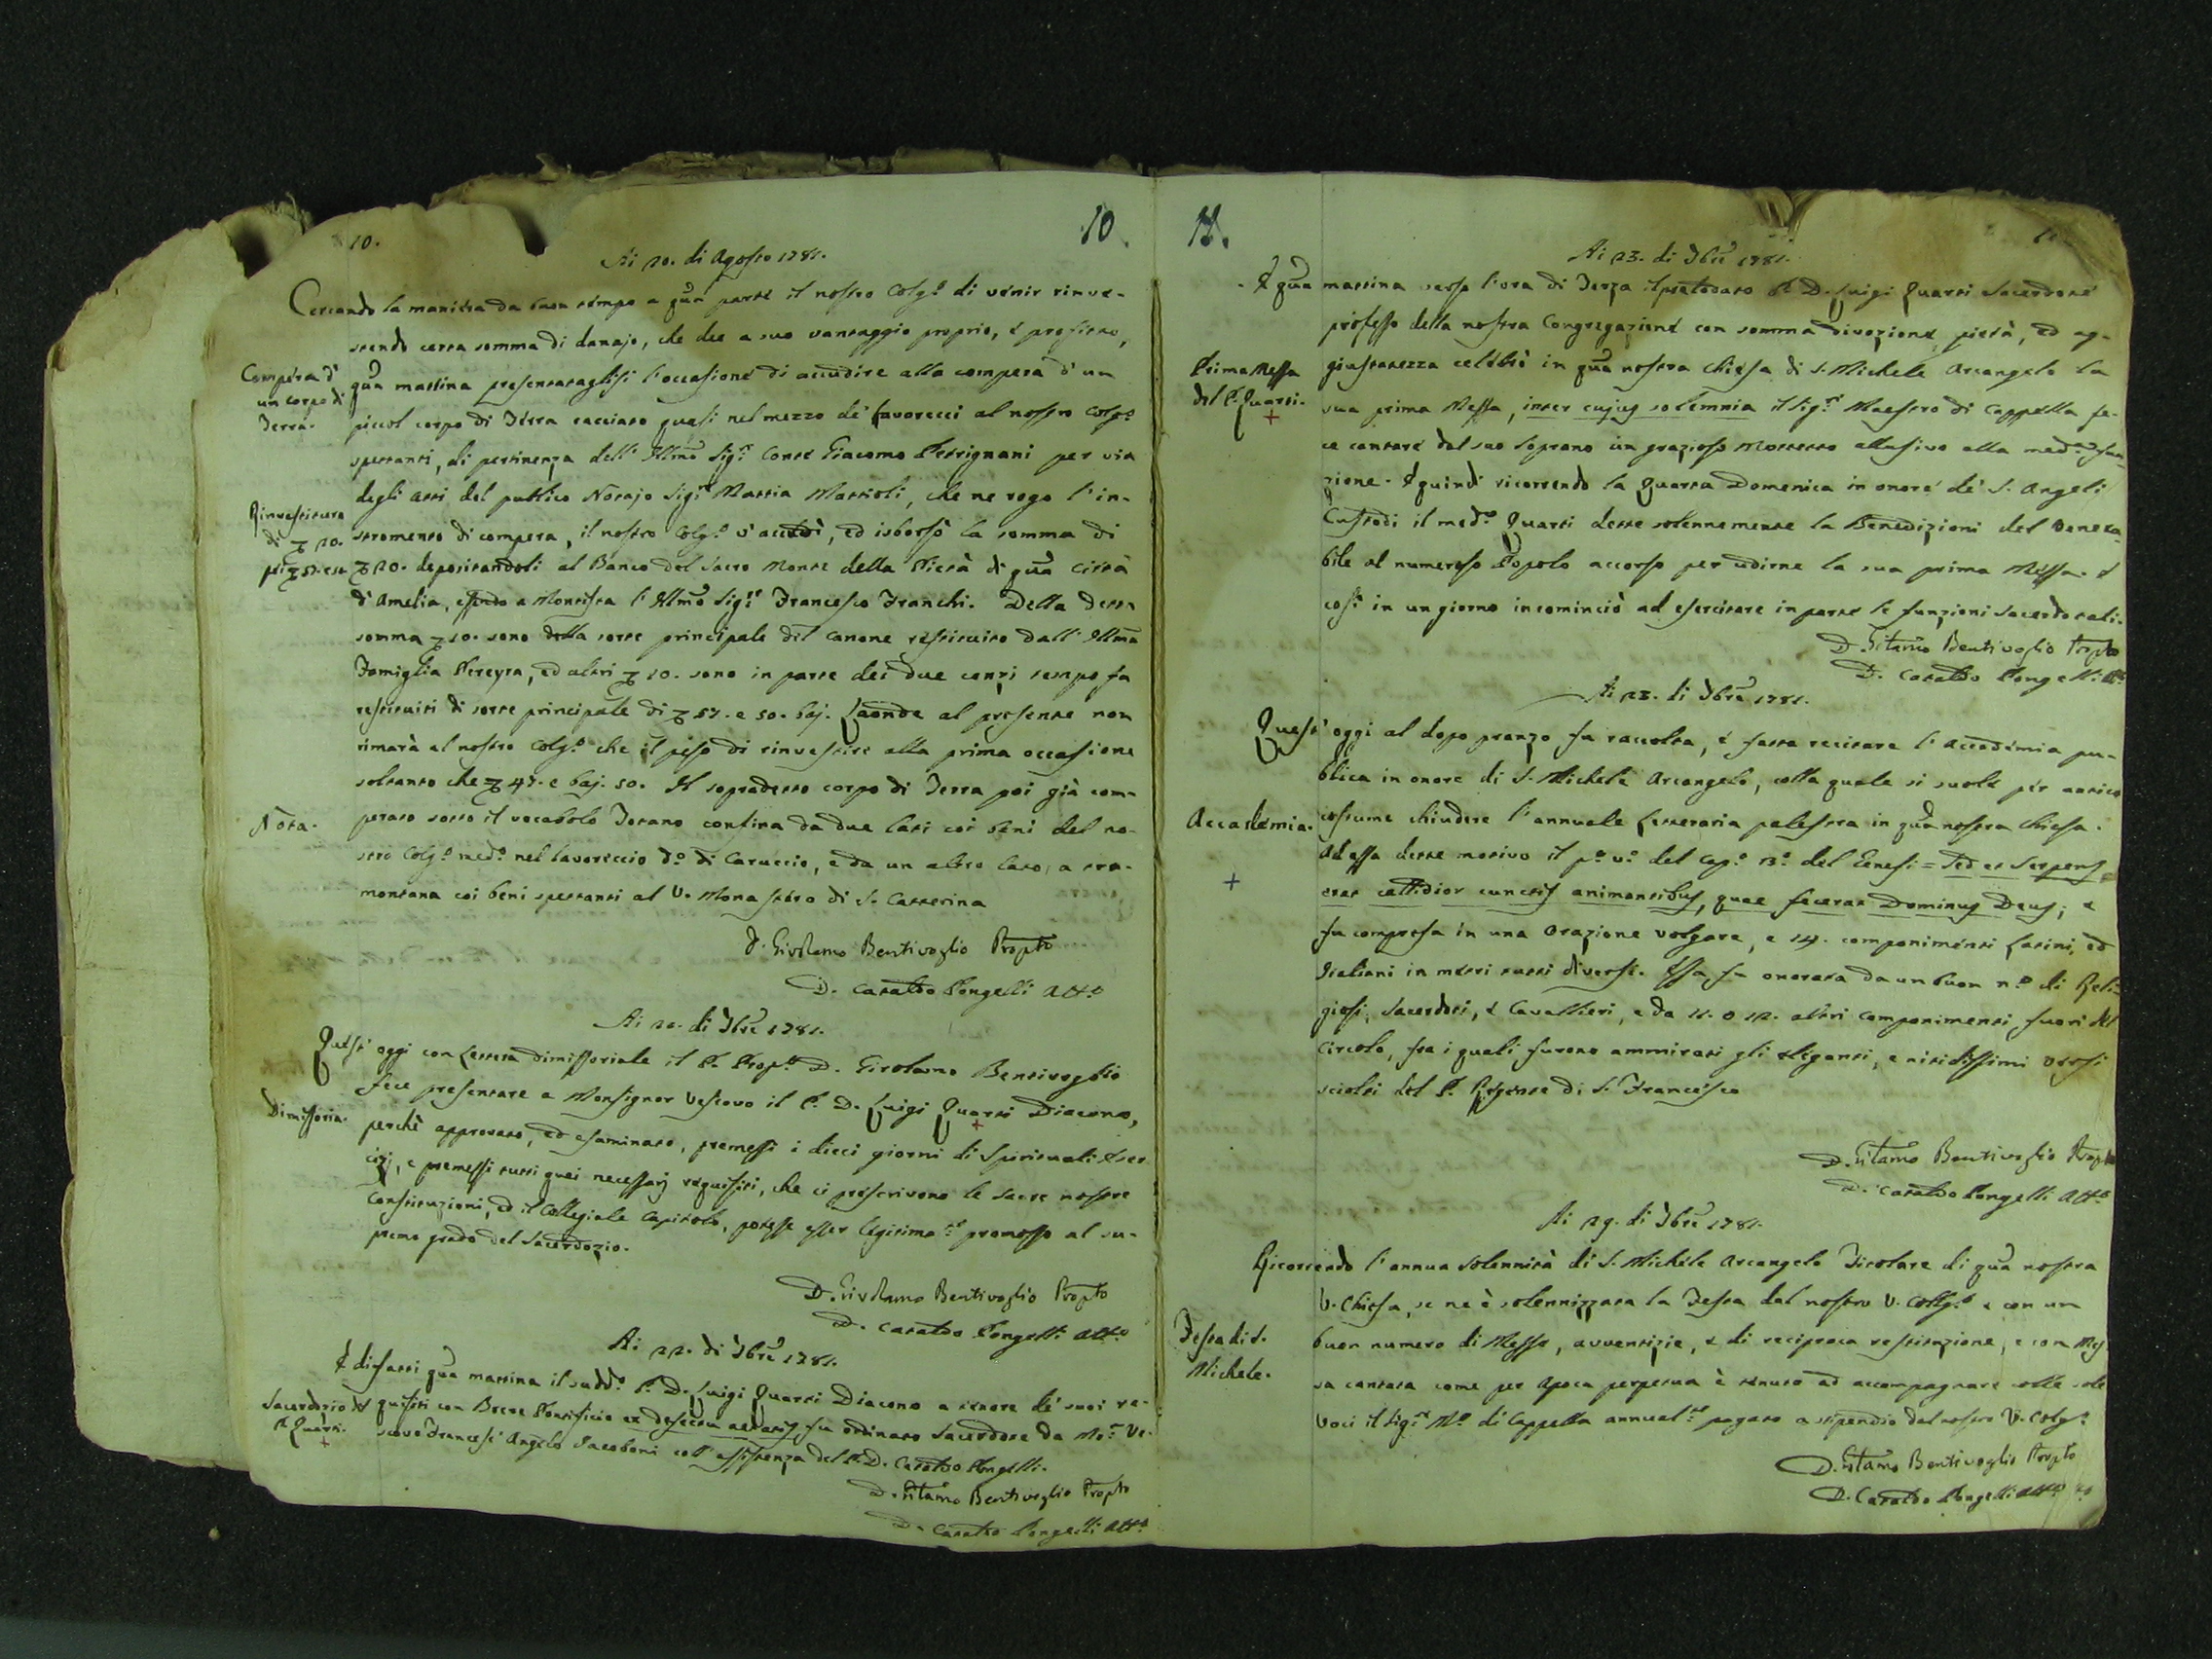 10.
10.
Ai 20. di Agosto 1781.
Cercando la maniera da buon tempo a qūa parte il nostro Colg.º di venir rinve-
stendo certa somma di danajo, che dee a suo vantaggio proprio, e profitto,
Compéra d'
un corpo di
Terra.
qūa mattina presentatagli si l'occasione di accudire alla compera d'un
piccol corpo di Terra cacciato quasi nel mezzo de' favorecci al nostro Colg.º
spettanti, di pertinenza dell' Illmo Sig.r Conte Giacomo Petrignani per via
degli atti del publico Notajo Sig.r Mattia Mattioli, che ne rogo l'in-
Rinvestitura
di ꝫ 20.
stromento di compera, il nostro Colg.º v'accudì, ed isborsò la somma di
ꝫ 20. depositandoli al Banco del Sacro Monte della Pietà di qūa Città
d'Amelia, essendo a Montista l'Illmo Sig.r Francesco Franchi. Della detta
somma ꝫ 10. sono della sorte principale del Canone restituito dall' Illma
Famiglia Pereyra, ed altri ꝫ 10. sono in parte dei due cenzi tempo fa
restituiti di sorte principale di ꝫ 57. e 50. baj. Laonde al presente non
rimarà al nostro Colg.º che il peso di rinvestire alla prima occasione
soltanto che ꝫ 47. e baj. 50. Il sopradetto corpo di Terra poi già com-
Nota.
perato sotto il vocabolo Totano confina da due lati coi beni del no-
stro Colg.º med.º nel lavoriccio d.º di Caruccio, e da un altro lato, a tra-
montana coi beni spettanti al V. Monastero di S. Catterina
D. Girolamo Bentivoglio Propto
D. Cataldo Pongelli Att.º
Ai 20. di 7bre 1781.
Quest' oggi con Lettera dimissoriale il P. Prop.to D. Girolamo Bentivoglio
fece presentare a Monsignor Vescovo il P. D. Luigi Quarti Diacono,
Dimissoria.
perchè approvato, ed esaminato, premessi i dieci giorni di Spirituali Eser-
cizj, e premessi tutti quei necessarj requisiti, che ci prescrivono le sacre nostre
Constituzioni, ed il Collegiale Capitolo, potesse esser legitima.te promosso al su-
premo grado del Sacerdozio.
D. Girolamo Bentivoglio Propto
D. Cataldo Pongelli Att.º
Ai 22. di 7bre 1781.
E difatti qūa mattina il sudd.º P. D. Luigi Quarti Diacono a tenore de' suoi re-
Sacerdozio del
P. Quarti.
quisiti con Breve Pontificio ex defectu aetatis, fu ordinato Sacerdote da Mo.r Ve-
scovo Francesc' Angelo Jacoboni coll' assistenza del P. D. Cataldo Pongelli.
D. Gitamo Bentivoglio Propto
D. Cataldo Pongelli Att.º
11.
Ai 23. di 7bre 1781.
E qūa mattina verso l'ora di Terza il prelodato P. D. Luigi Quarti Sacerdote
professo della nostra Congregazione con somma divozione, pietà, ed ag-
Prima Messa
del P. Quarti.
giustatezza celebrò in qūa nostra Chiesa di S. Michele Arcangelo la
sua prima Messa, inter cujus solemnia il Sig.r Maestro di Cappella fe-
ce cantare dal suo Soprano un grazioso Mottetto allusivo alla med.a fun-
zione. E quindi ricorrendo la quarta Domenica in onore de' S. Angeli
Custodi il med.º Quarti dette solennemente la Benedizioni del Venera-
bile al numeroso Popolo accorso per udirne la sua prima Messa. E
così in un giorno incominciò ad esercitare in parte le funzioni Sacerdotali.
D. Gitamo Bentivoglio Propto
D. Cataldo Pongelli Att.º
Ai 23. di 7bre 1781.
Quest' oggi al dopo pranzo fu raccolta, e fatta recitare l'Accademia pu-
blica in onore di S. Michele Arcangelo, colla quale si suole per antico
Accademia.
costume chiudere l'annuale Letteraria palestra in qūa nostra Chiesa.
Ad essa dette motivo il p.º v.º del Cap.º 13.º del Genesi = Sed et Serpens
erat callidior cunctis animantibus, quae fecerat Dominus Deus; e
fu compresa in una Orazione volgare, e 14. componimenti Latini, ed
Italiani in metri tutti diversi. Essa fu onorata da un buon n.º di Reli-
giosi, Sacerdoti, e Cavallieri, e da 11. o 12. altri componimenti fuori del
Circolo, fra i quali furono ammirati gli eleganti, e nitidissimi versi
sciolti del P. Reggente di S. Francesco
D. Gitamo Bentivoglio Propto
D. Cataldo Pongelli Att.º
Ai 29. di 7bre 1781.
Ricorrendo l'annua Solennità di S. Michele Arcangelo Titolare di qūa nostra
V. Chiesa, se ne è solennizzata la Festa dal nostro V. Collg.º e con un
Festa di S.
Michele.
buon numero di Messe, avventizie, e di reciproca restituzione, e con Mes
sa cantata come per Apoca perpetua è tenuto ad accompagnare colle sole
Voci il Sig.r M.º di Cappella annual.te pagato a stipendio dal nostro V. Colg.º
D. Gitamo Bentivoglio Propto
D. Cataldo Pongelli Att.º